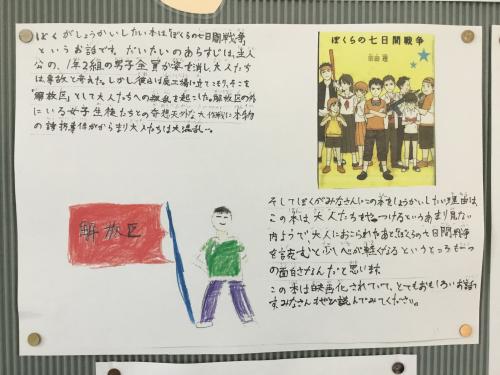 ぼくがしょうかいしたい本は「ぼくらの七日間戦争」
というお話です。だいたいのあらすじは、主人
公の、1年2組の男子全員が姿を消し、大人たち
は事故と考えた。しかし彼らは廃工場に立てこもり、そこを
"解放区"として大人たちへの叛乱を起こした。解放区の外
にいる女子生徒たちとの奇想天外な大作戦に本物
の誘拐事件がからまり大人たちは大混乱…。
ぼくらの七日間戦争
宗田 理
解放区
そしてぼくがみなさんにこの本をしょうかいしたい理由は、
この本は、大人たちをやっつけるというあまり見ない
内ようで、大人におこられたあと、ぼくらの七日間戦争
を読むと少し心が軽くなるというところも一つ
の面白さなんだと思います。
この本は映画化されていて、とてもおもしろいお話で
す。みなさんもぜひ読んでみてください。